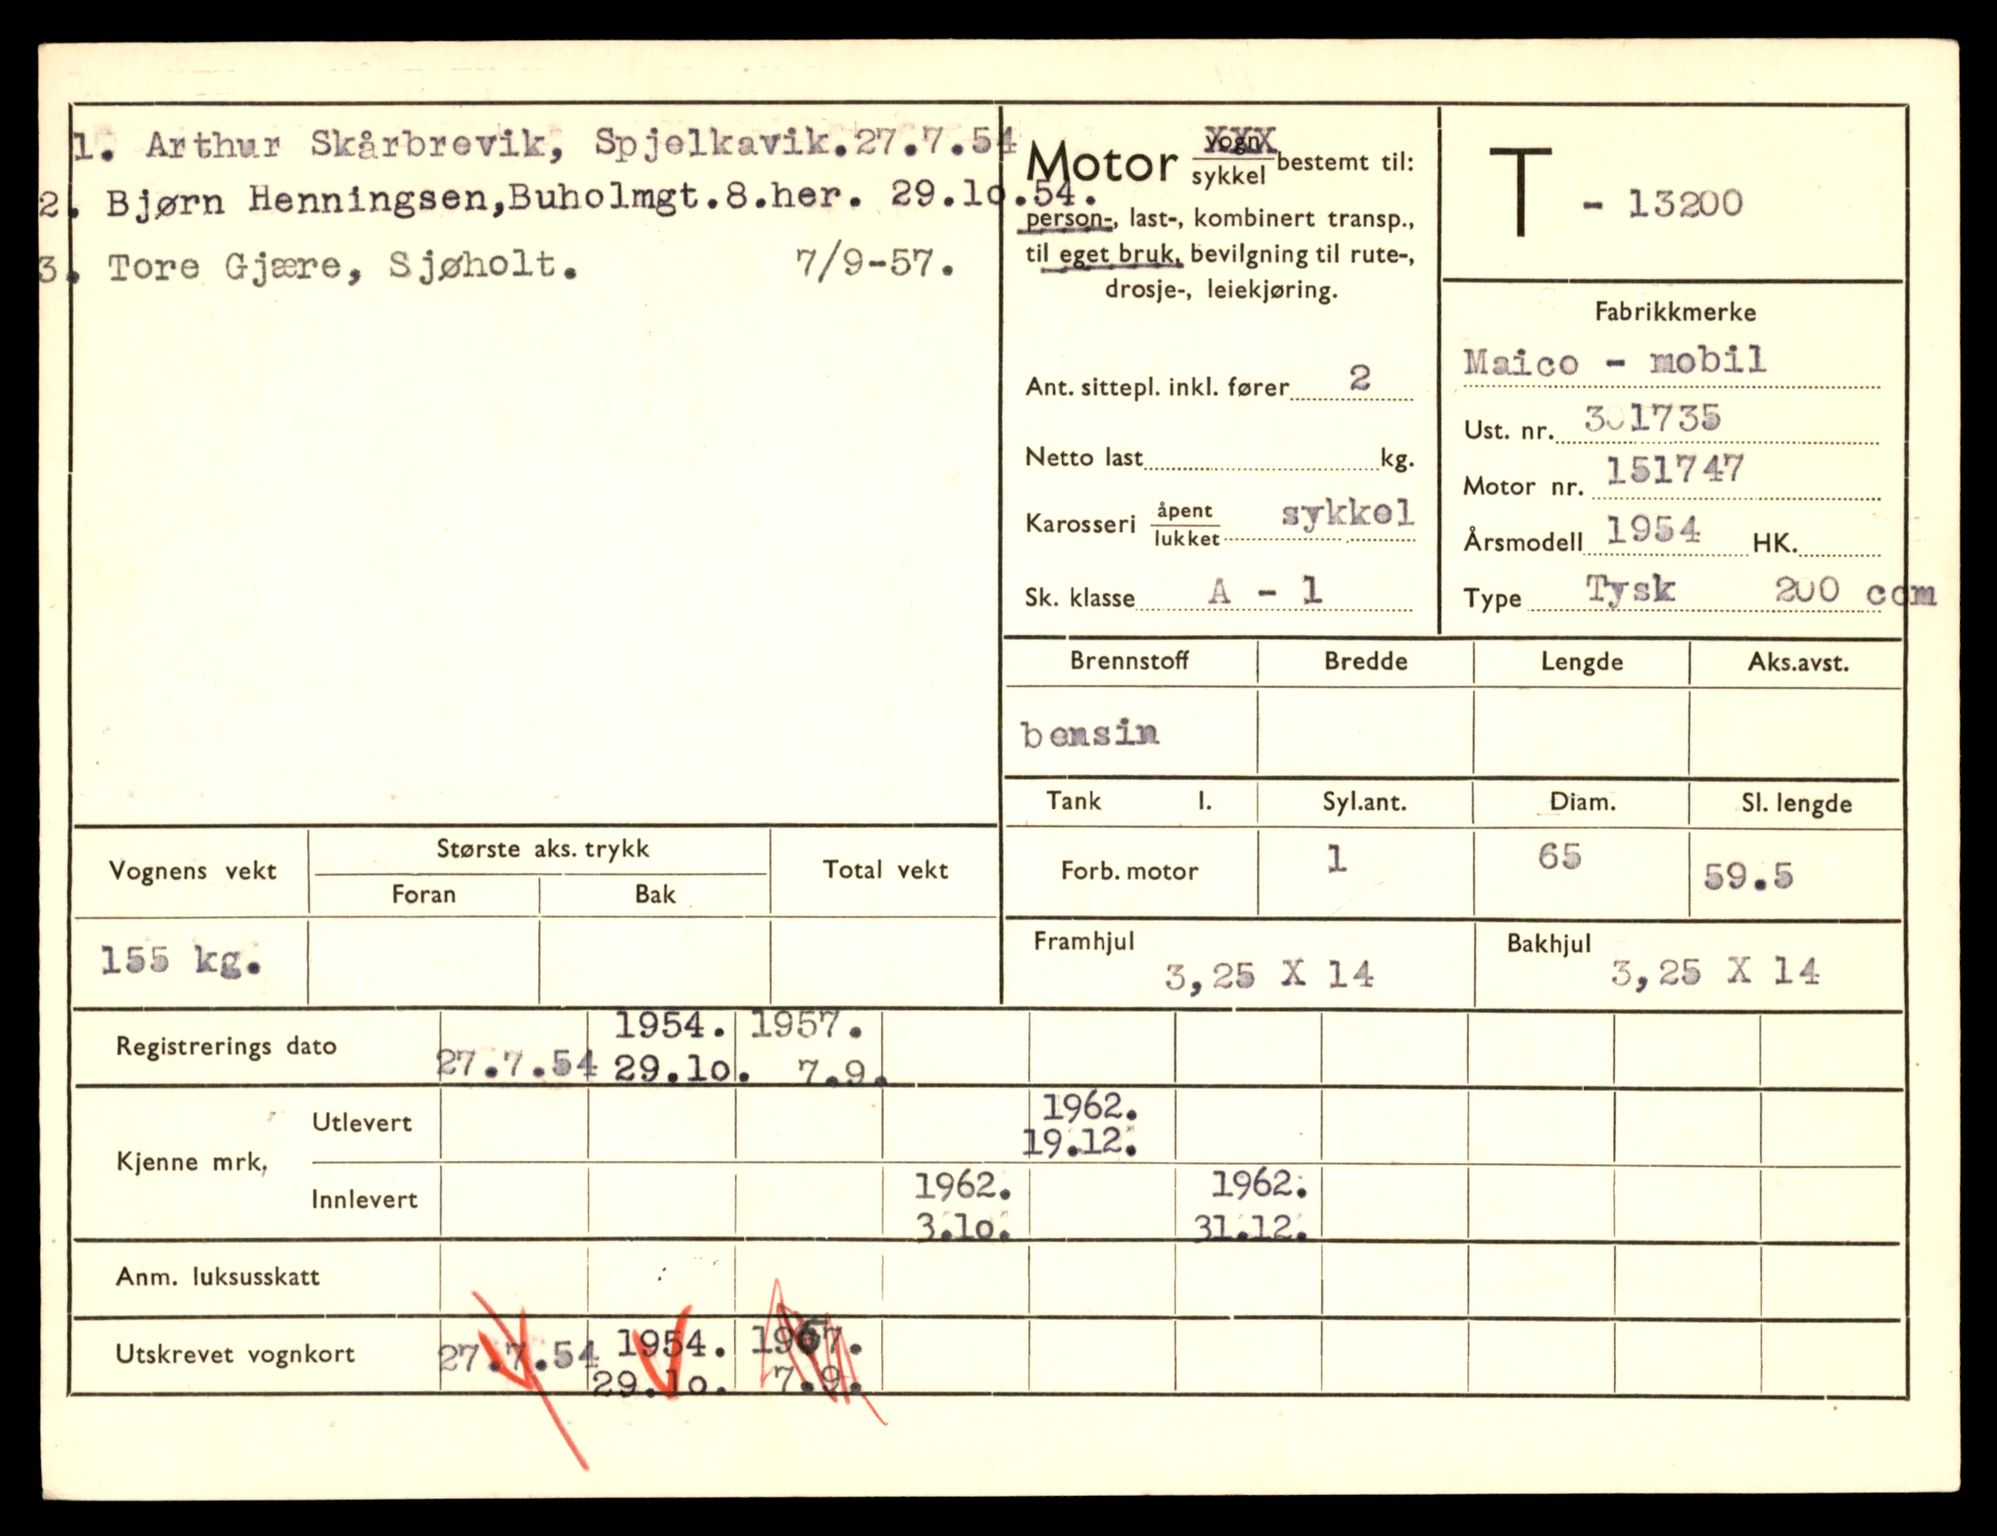 1. Arthur Skårbrevik, Spjelkavik.27.7.54
2. Bjørn Henningsen,Buholmgt.8.her. 29.lo.54.
3. Tore Gjære, Sjøholt. 7/9-57.
Motor vogn XXX / sykkel bestemt til:
person-, last-, kombinert transp.,
til eget bruk, bevilgning til rute-,
drosje-, leiekjøring.
Ant. sittepl. inkl. fører 2
Netto last kg.
Karosseri åpent / lukket sykkel
Sk. klasse A - 1
T - 13200
Fabrikkmerke
Maico - mobil
Ust. nr. 301735
Motor nr. 151747
Årsmodell 1954 HK.
Type Tysk 200 ccm
Brennstoff Bredde Lengde Aks.avst.
bensin
Tank l. Syl.ant. Diam. Sl. lengde
Forb. motor 1 65 59.5
Framhjul 3,25 X 14 Bakhjul 3,25 X 14
Vognens vekt Største aks. trykk Total vekt
Foran Bak
155 kg.
1954. 1957.
Registrerings dato 27.7.54 29.lo. 7.9.
Kjenne mrk.
Utlevert 1962.
19.12.
Innlevert 1962. 1962.
3.lo. 31.12.
Anm. luksusskatt
Utskrevet vognkort 27.7.54 1954. 1957.
29.lo. 7.9.